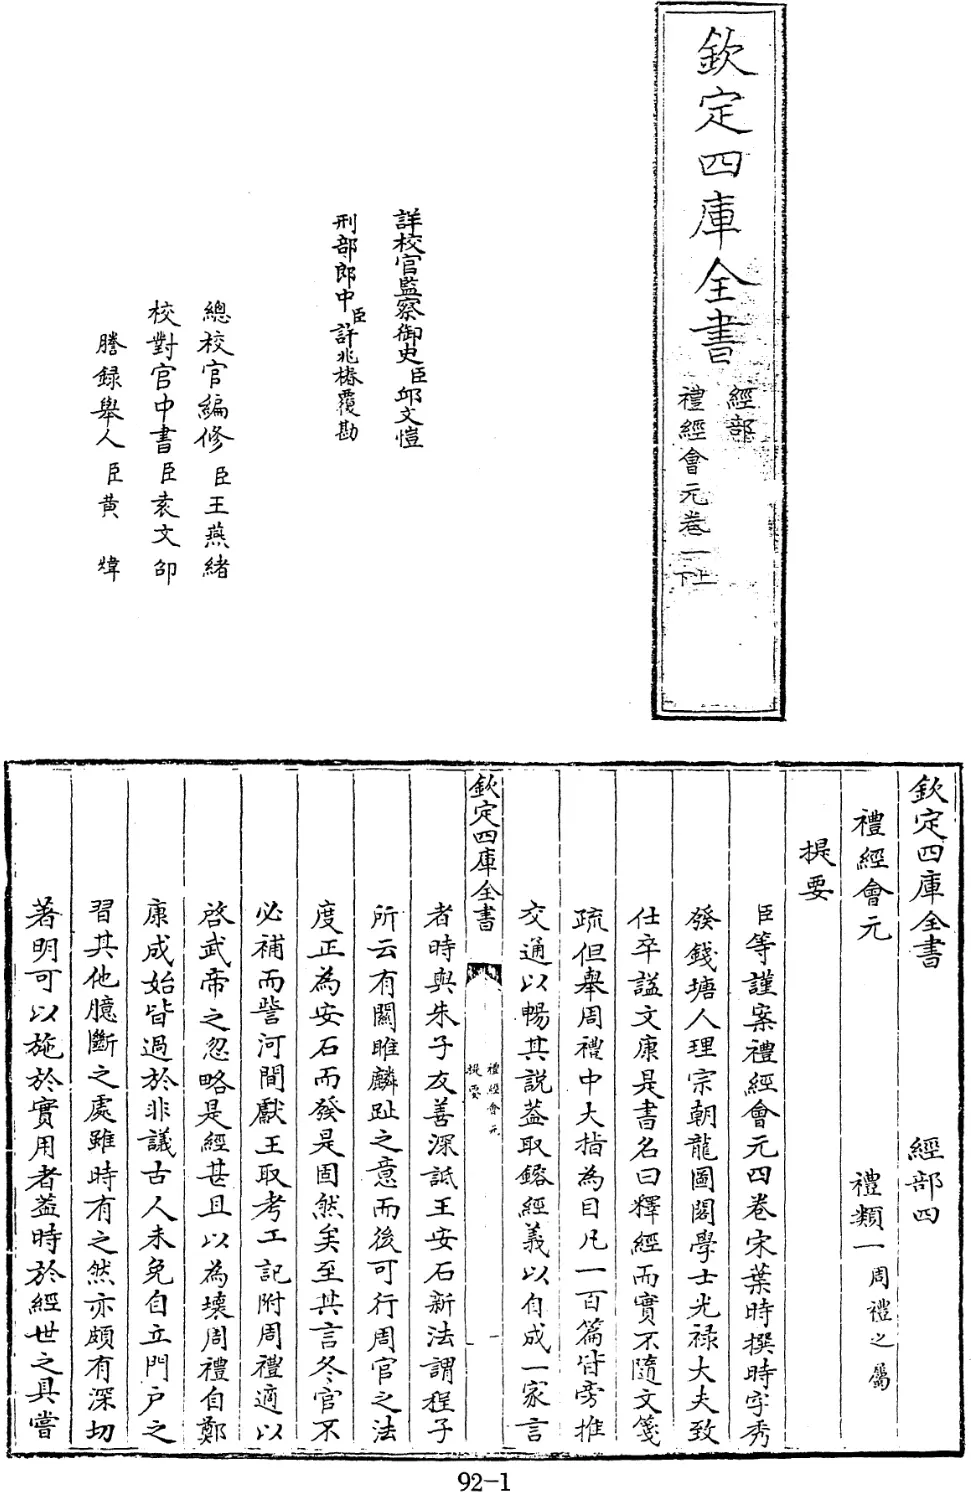 欽定四庫全書
經部
禮經會元卷一上下
詳校官監察御史臣邱文愷
刑部郎中臣許兆椿覆勘
總校官編修臣王燕緒
校對官中書臣袁文邵
謄錄舉人臣黄煒
欽定四庫全書 經部四
禮經會元 禮類一周禮之屬
提要
臣等謹案禮經會元四卷宋葉時撰時字秀
發錢塘人理宗朝龍圖閣學士光祿大夫致
仕卒諡文康是書名曰釋經而實不隨文箋
疏但舉周禮中大指為目凡一百篇皆旁推
交通以暢其説蓋取鎔經義以自成一家言
欽定四庫全書
禮經會元
提要
一
者時與朱子友善深詆王安石新法謂程子
所云有關雎麟趾之意而後可行周官之法
度正為安石而發是固然矣至其言冬官不
必補而訾河間獻王取考工記附周禮適以
啓武帝之忽略是經甚且以為壞周禮自鄭
康成始皆過於非議古人未免自立門户之
習其他臆斷之處雖時有之然亦頗有深切
著明可以施於實用者蓋時於經世之具嘗
92-1